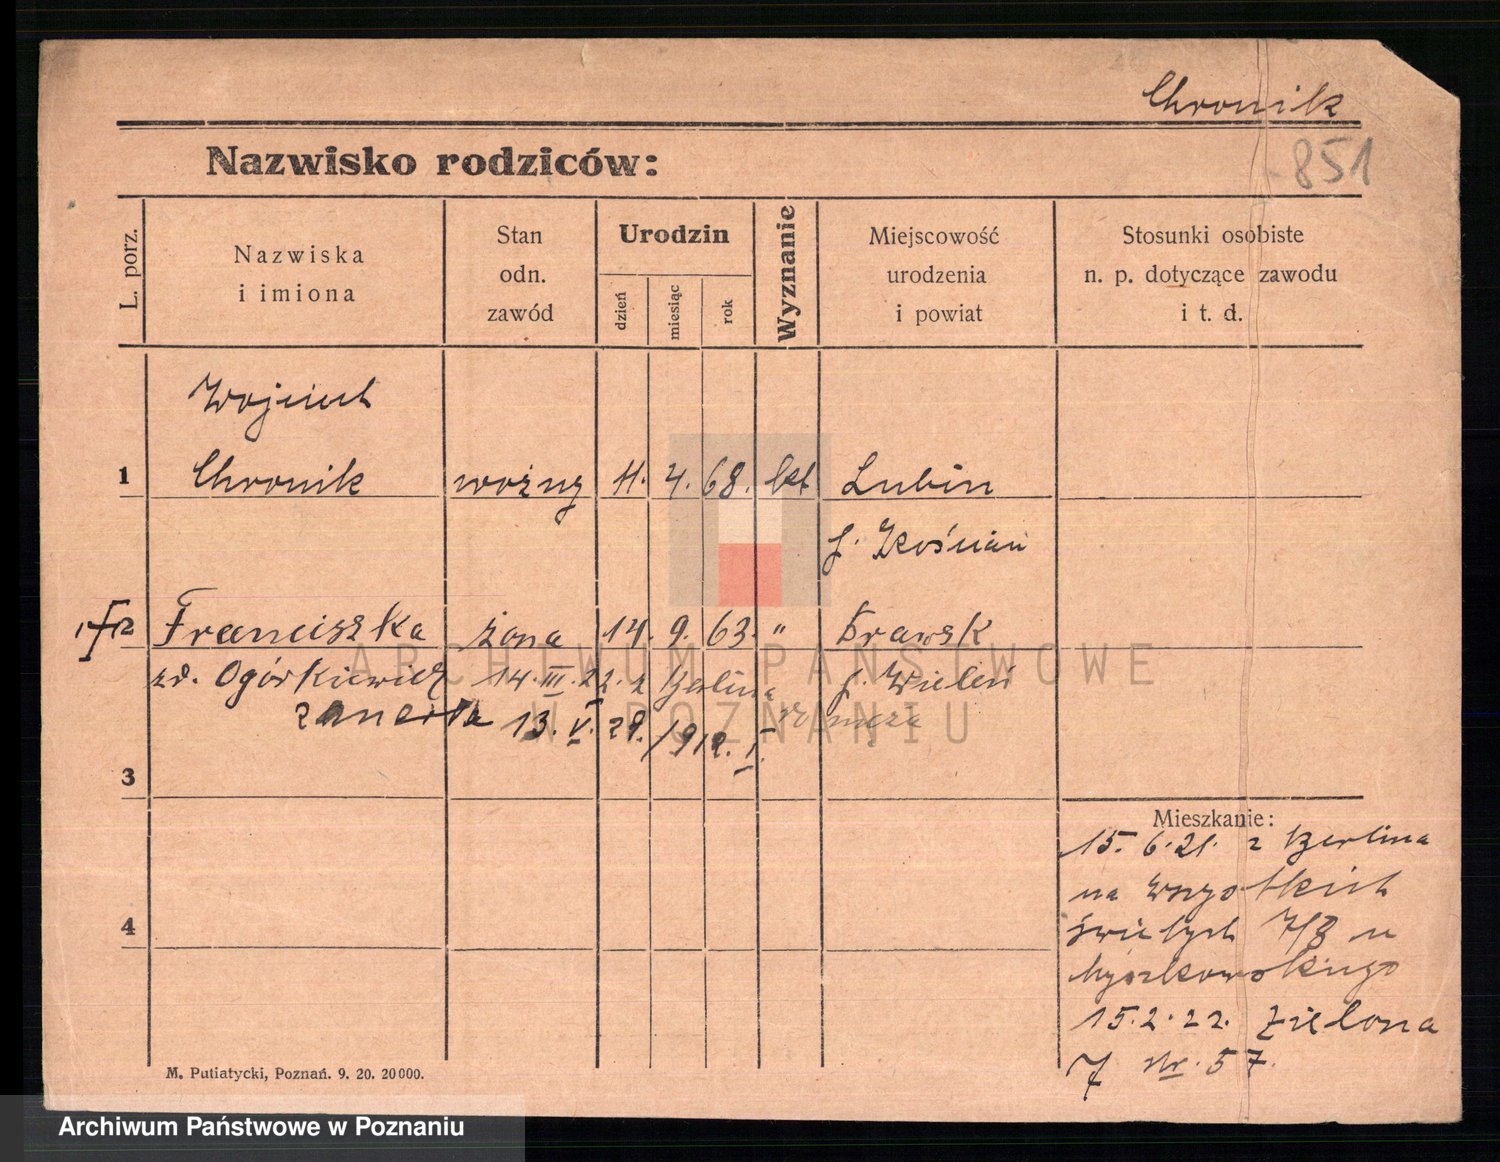 Chronik
851
Nazwisko rodziców:
L. porz.
Nazwiska
i imiona
Stan
odn.
zawód
Urodzin
dzień
miesiąc
rok
Wyznanie
Miejscowość
urodzenia
i powiat
Stosunki osobiste
n. p. dotyczące zawodu
i t. d.
Wojciech
1 Chronik woźny 11. 4. 68. kat Lubin
p. Kościan
2 Franciszka żona 14. 9. 63. " Drawsk
zd. Ogórkiewicz 14. III. 22. z Berlina p. Wieleń
zmarła 13. V. 29. /912. I. męża
3
4
Mieszkanie:
15. 6. 21. z Berlina
na Wszystkich
Świętych 7/8 u
15. 2. 22. Zielona
7 nr. 57.
M. Putiatycki, Poznań. 9. 20. 20000.
ARCHIWUM PAŃSTWOWE
W POZNANIU
Archiwum Państwowe w Poznaniu